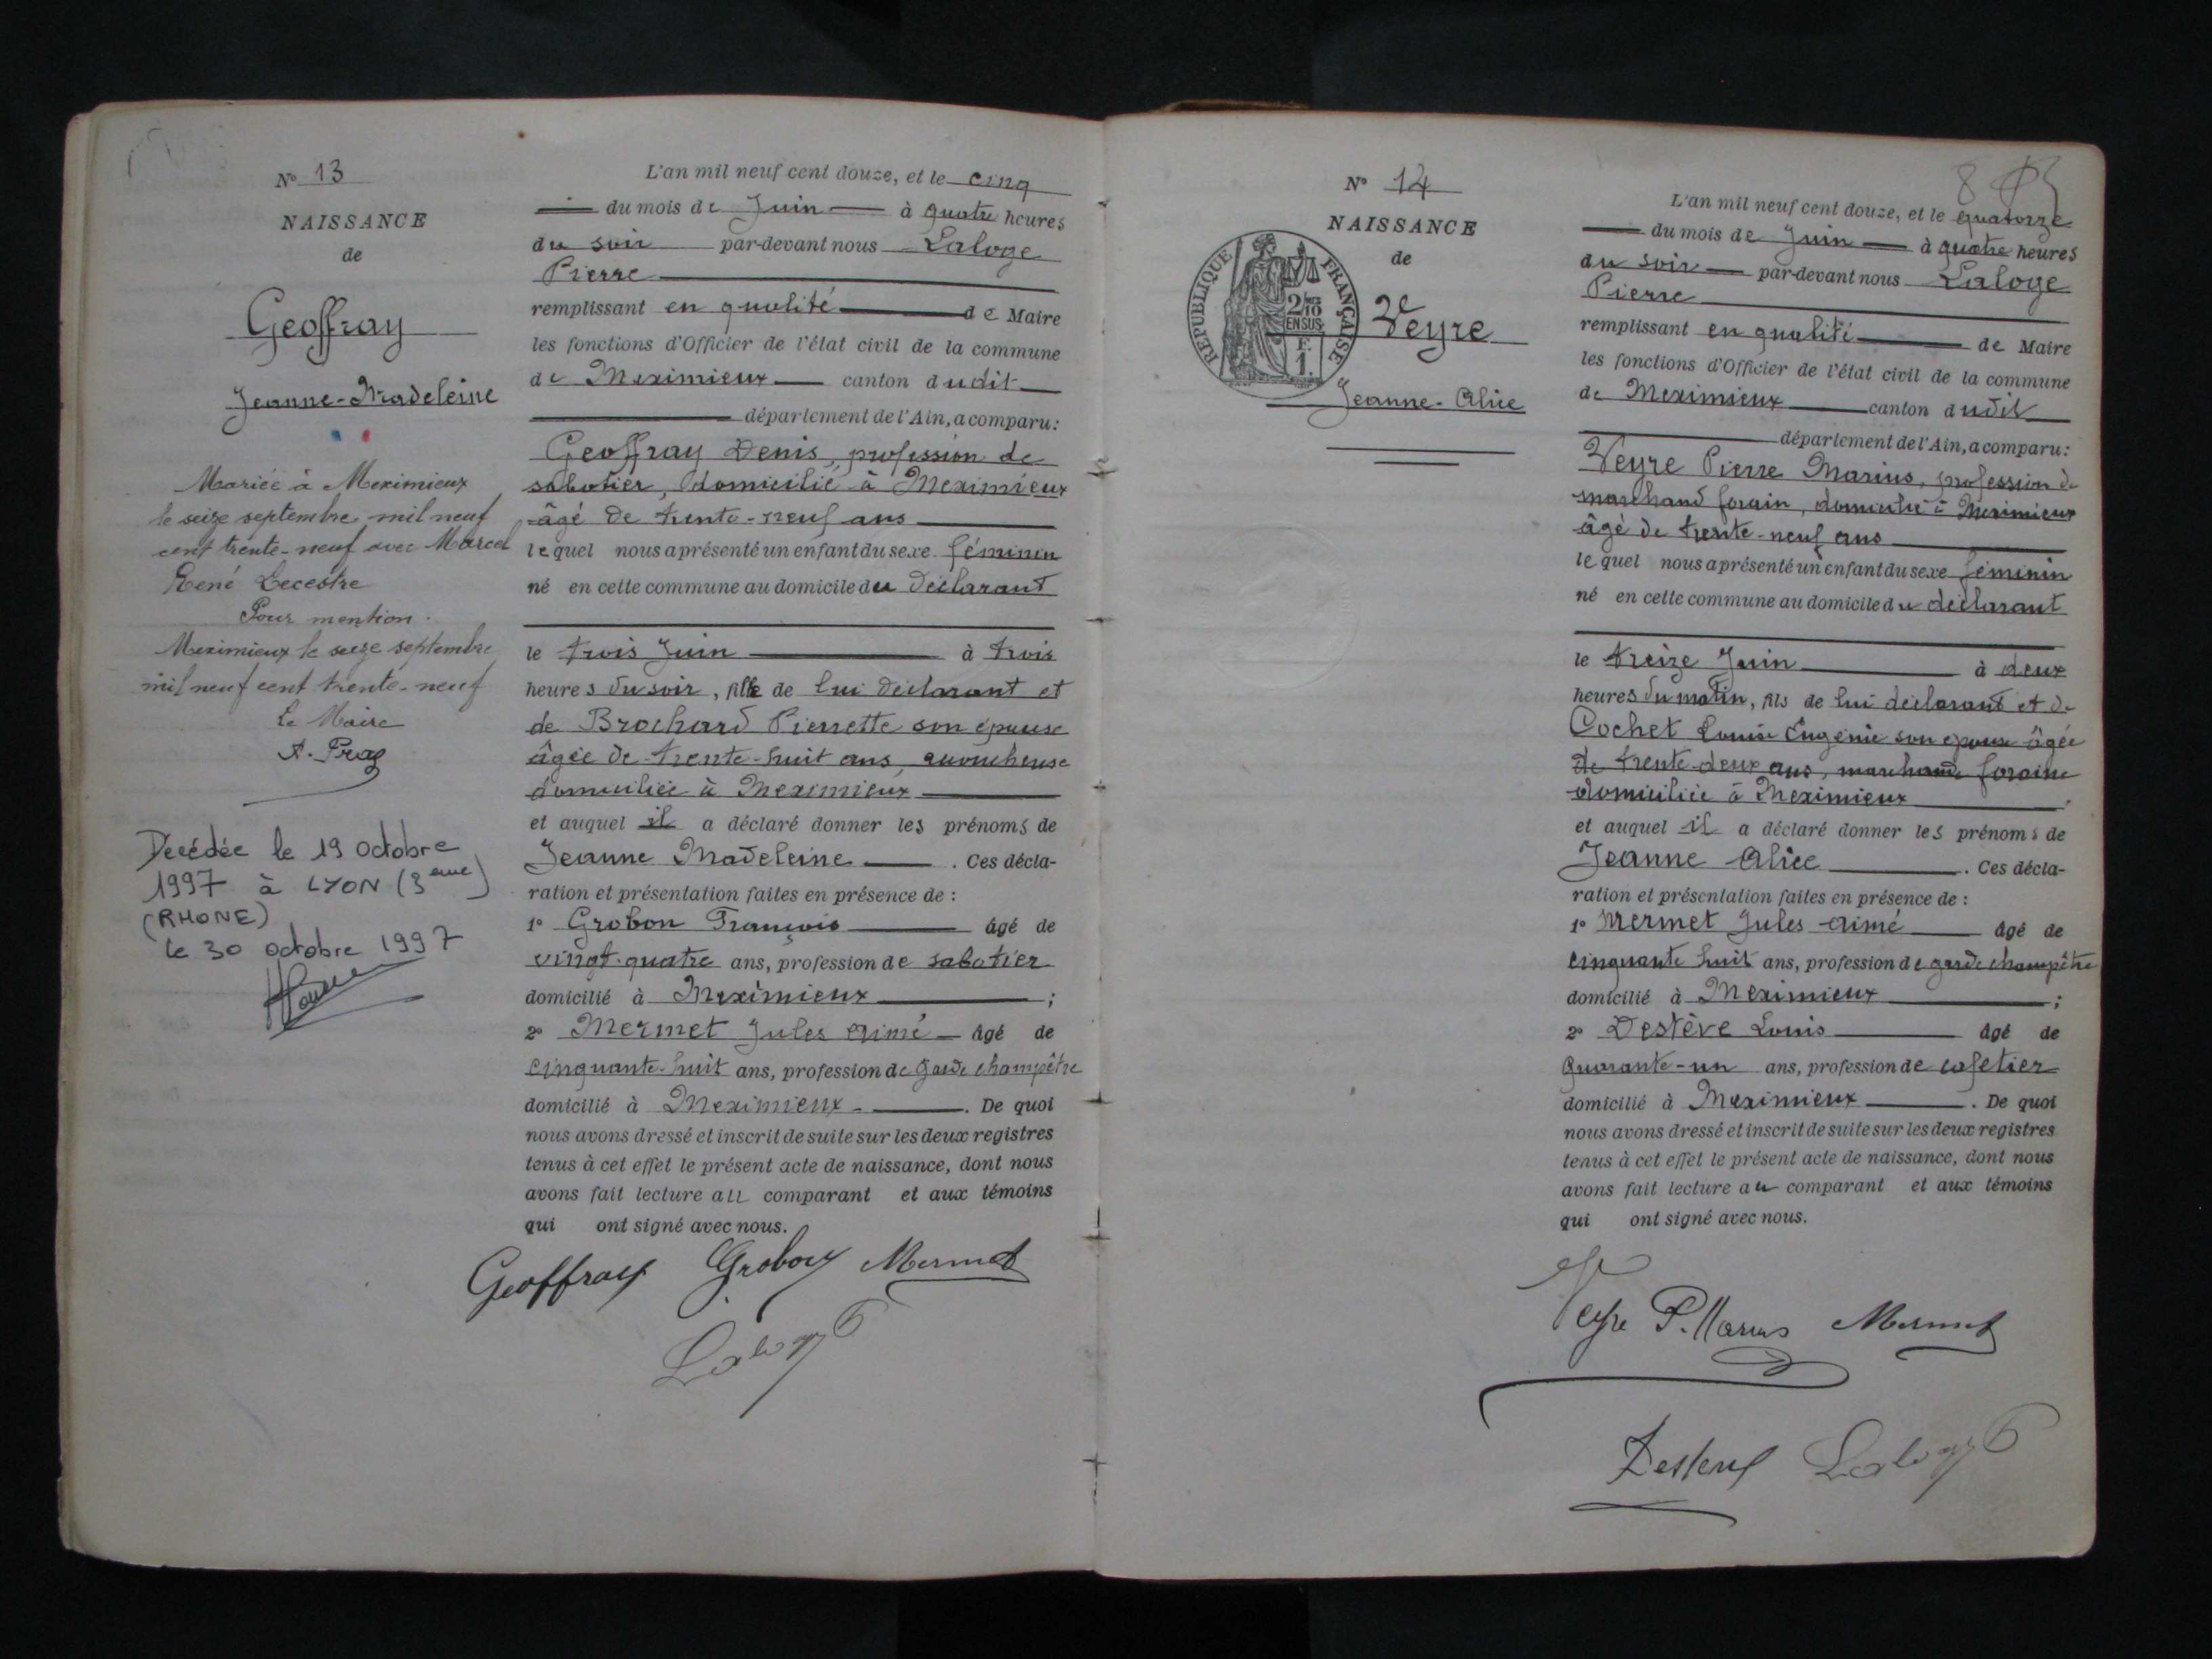 N° 13
NAISSANCE
de
Geoffray
Jeanne-Madeleine
Mariée à Meximieux
le seize septembre mil neuf
cent trente-neuf avec Marcel
René Lecestre
Pour mention.
Meximieux le seize septembre
mil neuf cent trente-neuf
Le Maire
Décédée le 19 octobre
1997 à LYON (3eme)
(RHONE)
le 30 octobre 1997
L'an mil neuf cent douze, et le cinq
du mois de Juin à quatre heures
du soir par-devant nous Laloge
Pierre
remplissant en qualité de Maire
les fonctions d'Officier de l'état civil de la commune
de Meximieux canton dudit
département de l'Ain, a comparu:
Geoffray Denis, profession de
sabotier, domicilié à Meximieux
âgé de trente-neuf ans
lequel nous a présenté un enfant du sexe féminin
né en cette commune au domicile du déclarant
le trois Juin à trois
heures du soir, fille de lui déclarant et
de Brochard Pierrette son épouse
âgée de trente-huit ans, accoucheuse
domiciliée à Meximieux
et auquel il a déclaré donner les prénoms de
Jeanne Madeleine. Ces décla-
ration et présentation faites en présence de :
1° Grobon François âgé de
vingt-quatre ans, profession de sabotier
domicilié à Meximieux ;
2° Mermet Jules Aimé âgé de
cinquante-huit ans, profession de garde champêtre
domicilié à Meximieux. De quoi
nous avons dressé et inscrit de suite sur les deux registres
tenus à cet effet le présent acte de naissance, dont nous
avons fait lecture au comparant et aux témoins
qui ont signé avec nous.
Geoffray Grobon Mermet
Laloge
N° 14
NAISSANCE
de
RÉPUBLIQUE FRANÇAISE
2/10
EN SUS
F.
1.
Veyre
Jeanne-Alice
8
L'an mil neuf cent douze, et le quatorze
du mois de Juin à quatre heures
du soir par-devant nous Laloge
Pierre
remplissant en qualité de Maire
les fonctions d'Officier de l'état civil de la commune
de Meximieux canton dudit
département de l'Ain, a comparu:
Veyre Pierre Marius, profession de
marchand forain, domicilié à Meximieux
âgé de trente-neuf ans
lequel nous a présenté un enfant du sexe féminin
né en cette commune au domicile du déclarant
le treize Juin à deux
heures du matin, fils de lui déclarant et de
Cochet Louise Eugénie son épouse âgée
de trente-deux ans, marchande foraine
domiciliée à Meximieux
et auquel il a déclaré donner les prénoms de
Jeanne Alice. Ces décla-
ration et présentation faites en présence de :
1° Mermet Jules Aimé âgé de
cinquante huit ans, profession de garde champêtre
domicilié à Meximieux ;
2° Destève Louis âgé de
quarante-un ans, profession de cafetier
domicilié à Meximieux. De quoi
nous avons dressé et inscrit de suite sur les deux registres
tenus à cet effet le présent acte de naissance, dont nous
avons fait lecture au comparant et aux témoins
qui ont signé avec nous.
Veyre P. Marius Mermet
Laloge